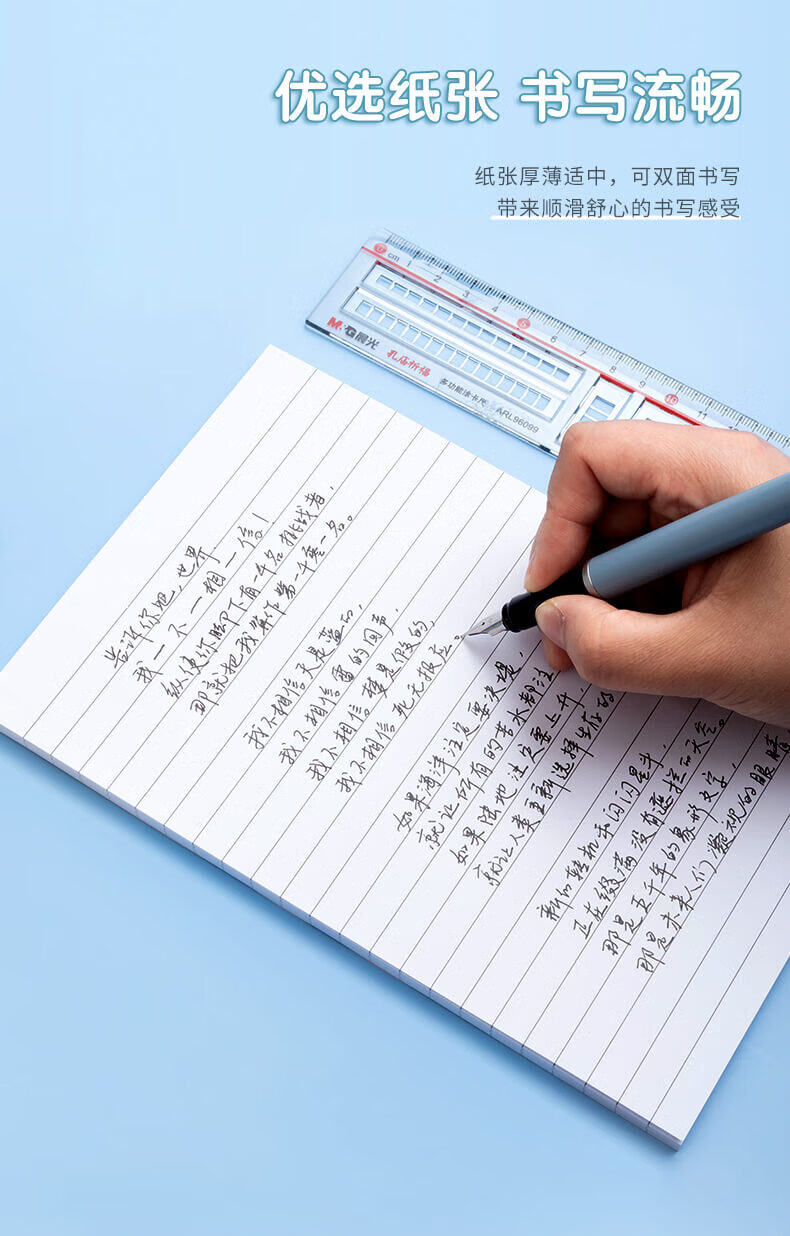 优选纸张 书写流畅
纸张厚薄适中，可双面书写
带来顺滑舒心的书写感受
0 cm 1 2 3 4 5 6 7 8 9 10 11
M&G晨光 孔庙祈福 多功能读书尺 ARL96099
告诉你吧 世界
我一不一相一信!
纵使你脚下有一千名挑战者,
那就把我算作第一千零一名。
我不相信天是蓝的,
我不相信雷的回声,
我不相信梦是假的,
我不相信死无报应。
如果海洋注定要决堤,
就让所有的苦水都注
如果陆地注定要上升,
就让人类重新选择生存的
新的转机和闪闪星斗,
正在缀满没有遮拦的天空。
那是五千年的象形文字,
那是未来人们凝视的眼睛